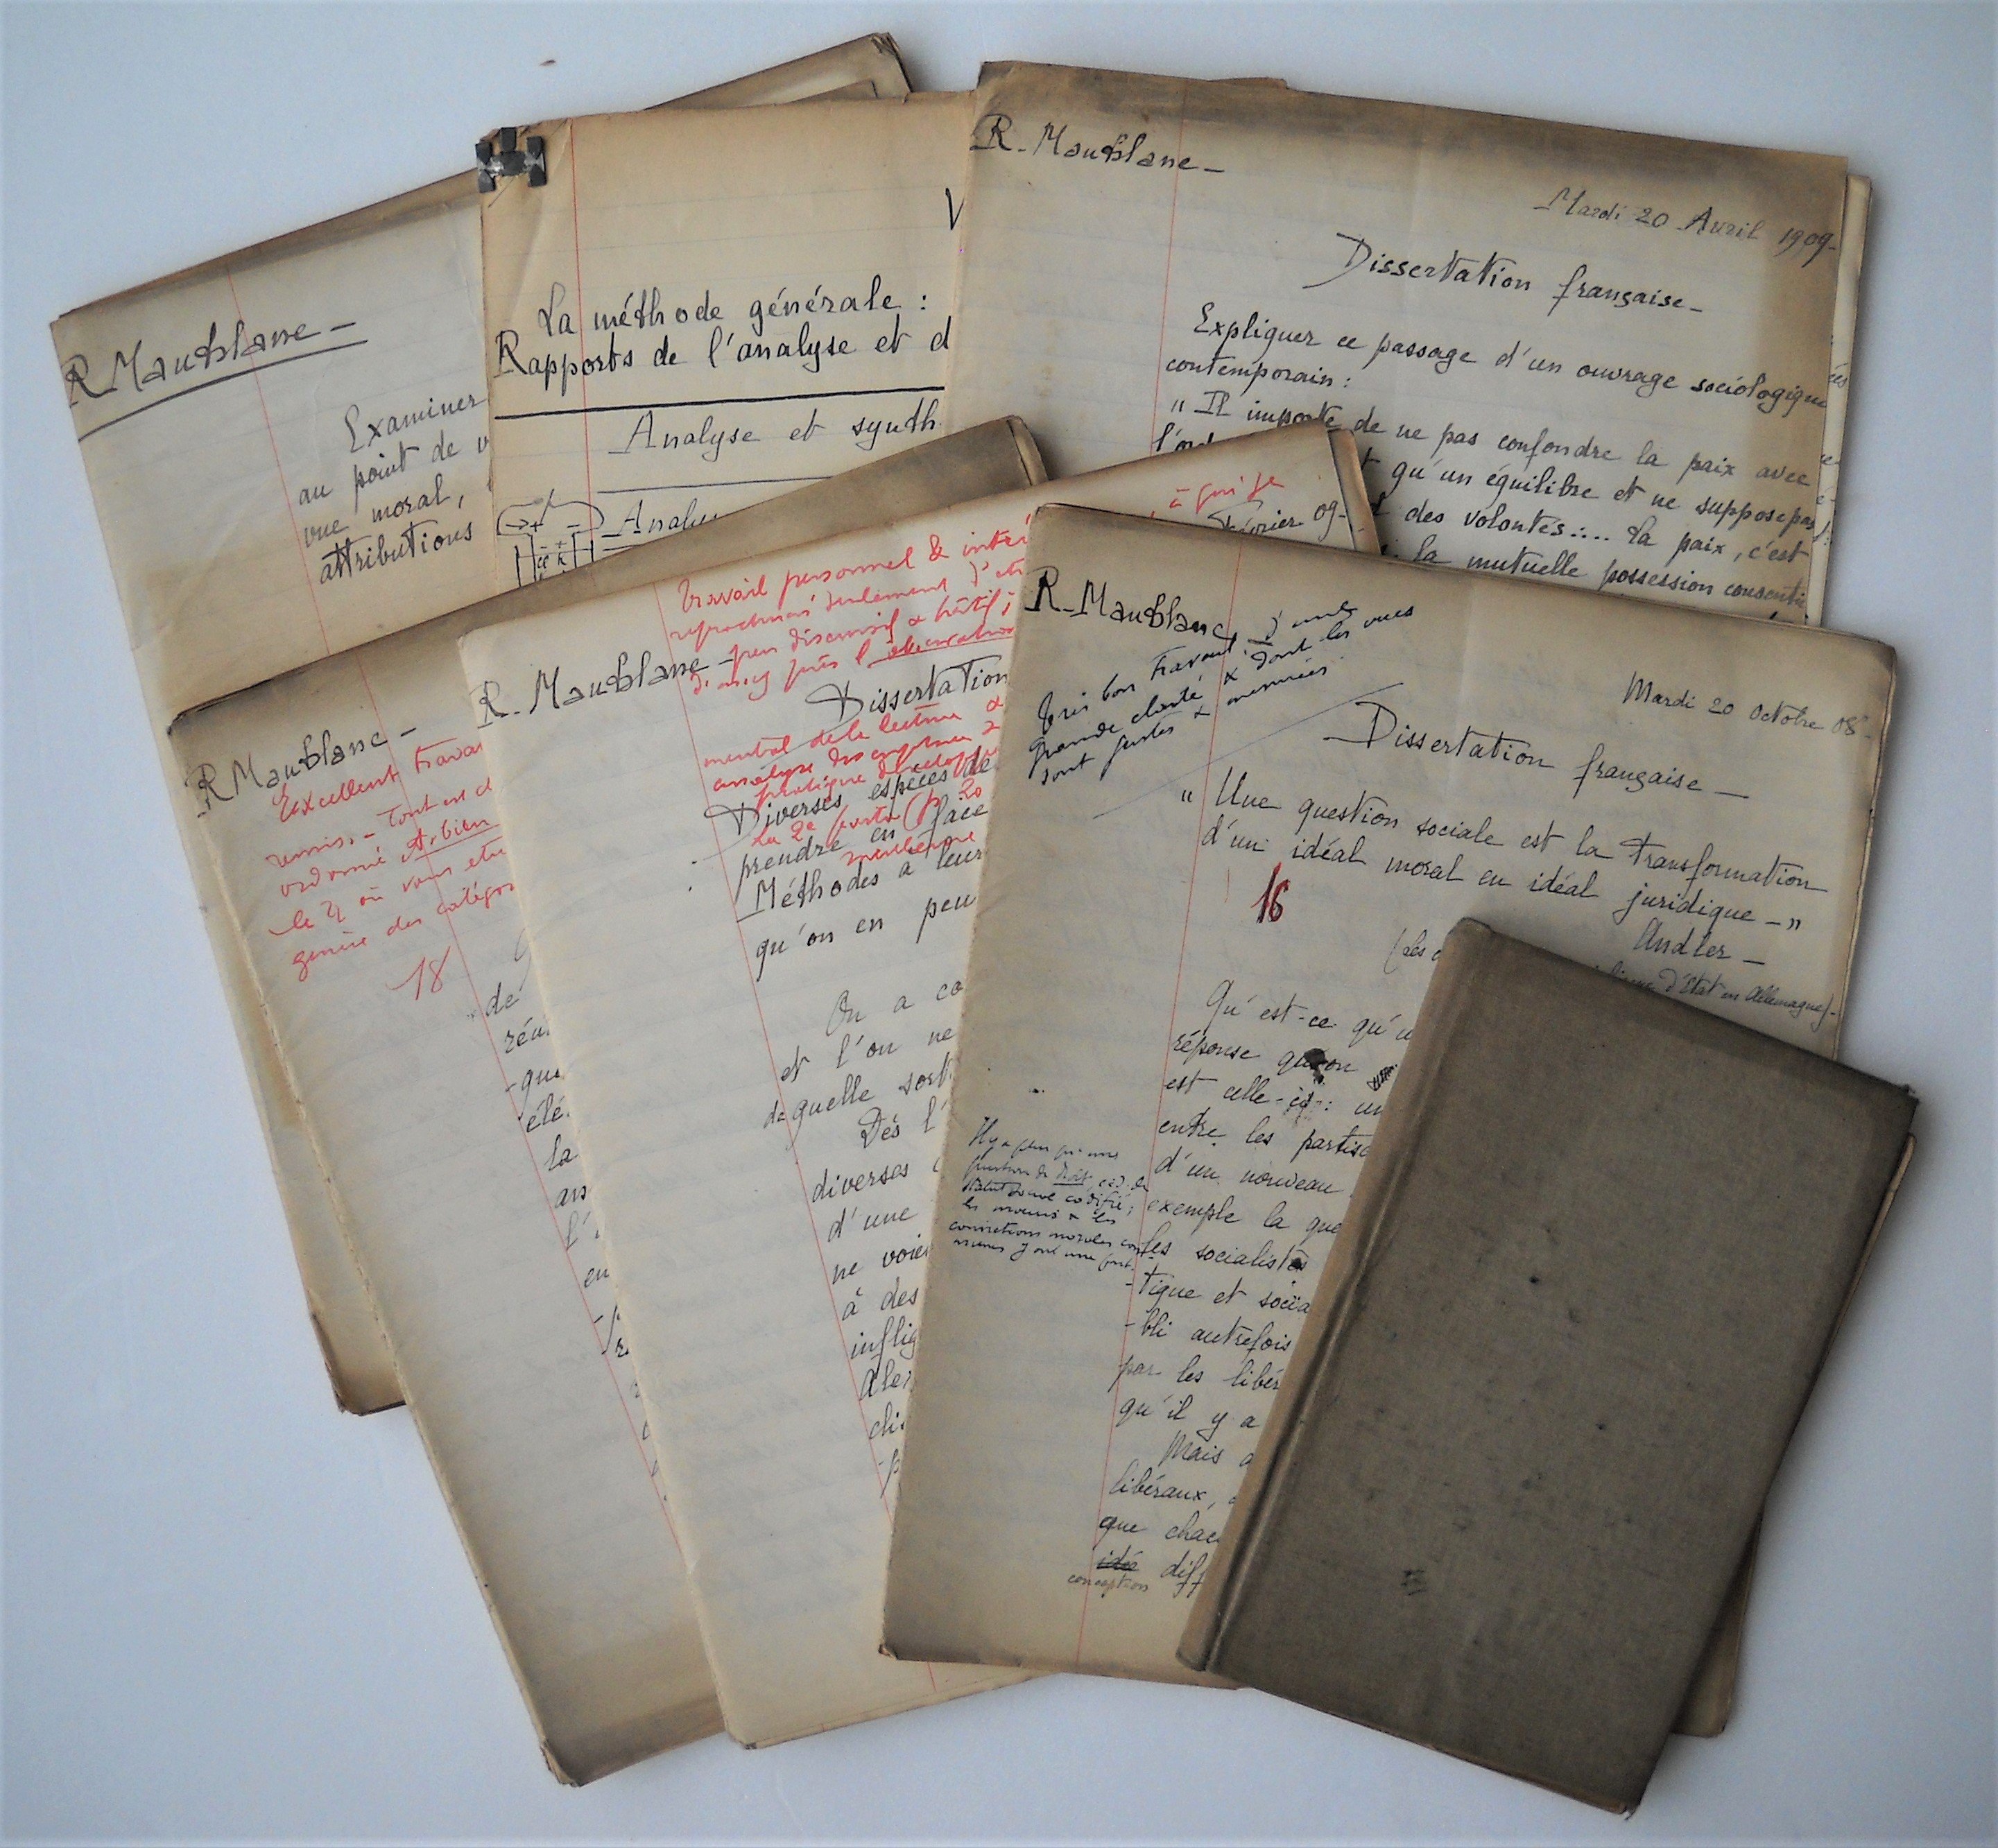 R. Maublanc
Examiner
au point de v
vue moral,
attributions
V
La méthode générale :
Rapports de l'analyse et d
Analyse et synth
Analy
R. Maublanc
Mardi 20 Avril 1909.
Dissertation française
Expliquer ce passage d'un ouvrage sociologique
contemporain :
" Il importe de ne pas confondre la paix avec
l'ord qu'un équilibre et ne suppose pas
des volontés.... La paix, c'est
la mutuelle possession consenti
R Maublanc
Excellent travai
remis. - Tout est
ordonné & bien
le § où vous
genèse des catégor
18
de
réu
-que
élé
la
ans
l'
en
R. Maublanc
Travail personnel & intér
seulement
peu discursif & hâtif ;
l'observation
février 09-
Dissertation
mental de la lecture
analyse
pratique
Diverses espèces de
la 2e partie
prendre en face
Méthodes à leur
qu'on en peu
On a co
et l'on ne
de quelle sort
Dès l'
diverses
d'une
ne voie
à des
inflig
Alex
chi
R. Maublanc
Très bon travail, d'une
grande clarté & dont les vues
sont justes & mesurées
Mardi 20 Octobre 08-
Dissertation française
" Une question sociale est la transformation
d'un idéal moral en idéal juridique - "
16
Andler
(Les o d'État en Allemagne)
Qu'est-ce qu'u
réponse qu'on
est celle-ci : un
entre les partisa
d'un nouveau
exemple la que
les socialistes
tique et socia
-bli autrefois
par les libér
qu'il y a
Mais
libéraux,
que chac
idée diff
conception
Il y a plus qu'une
question de droit, càd. de
codifié ;
les moeurs & les
convictions morales com
munes y ont une part.